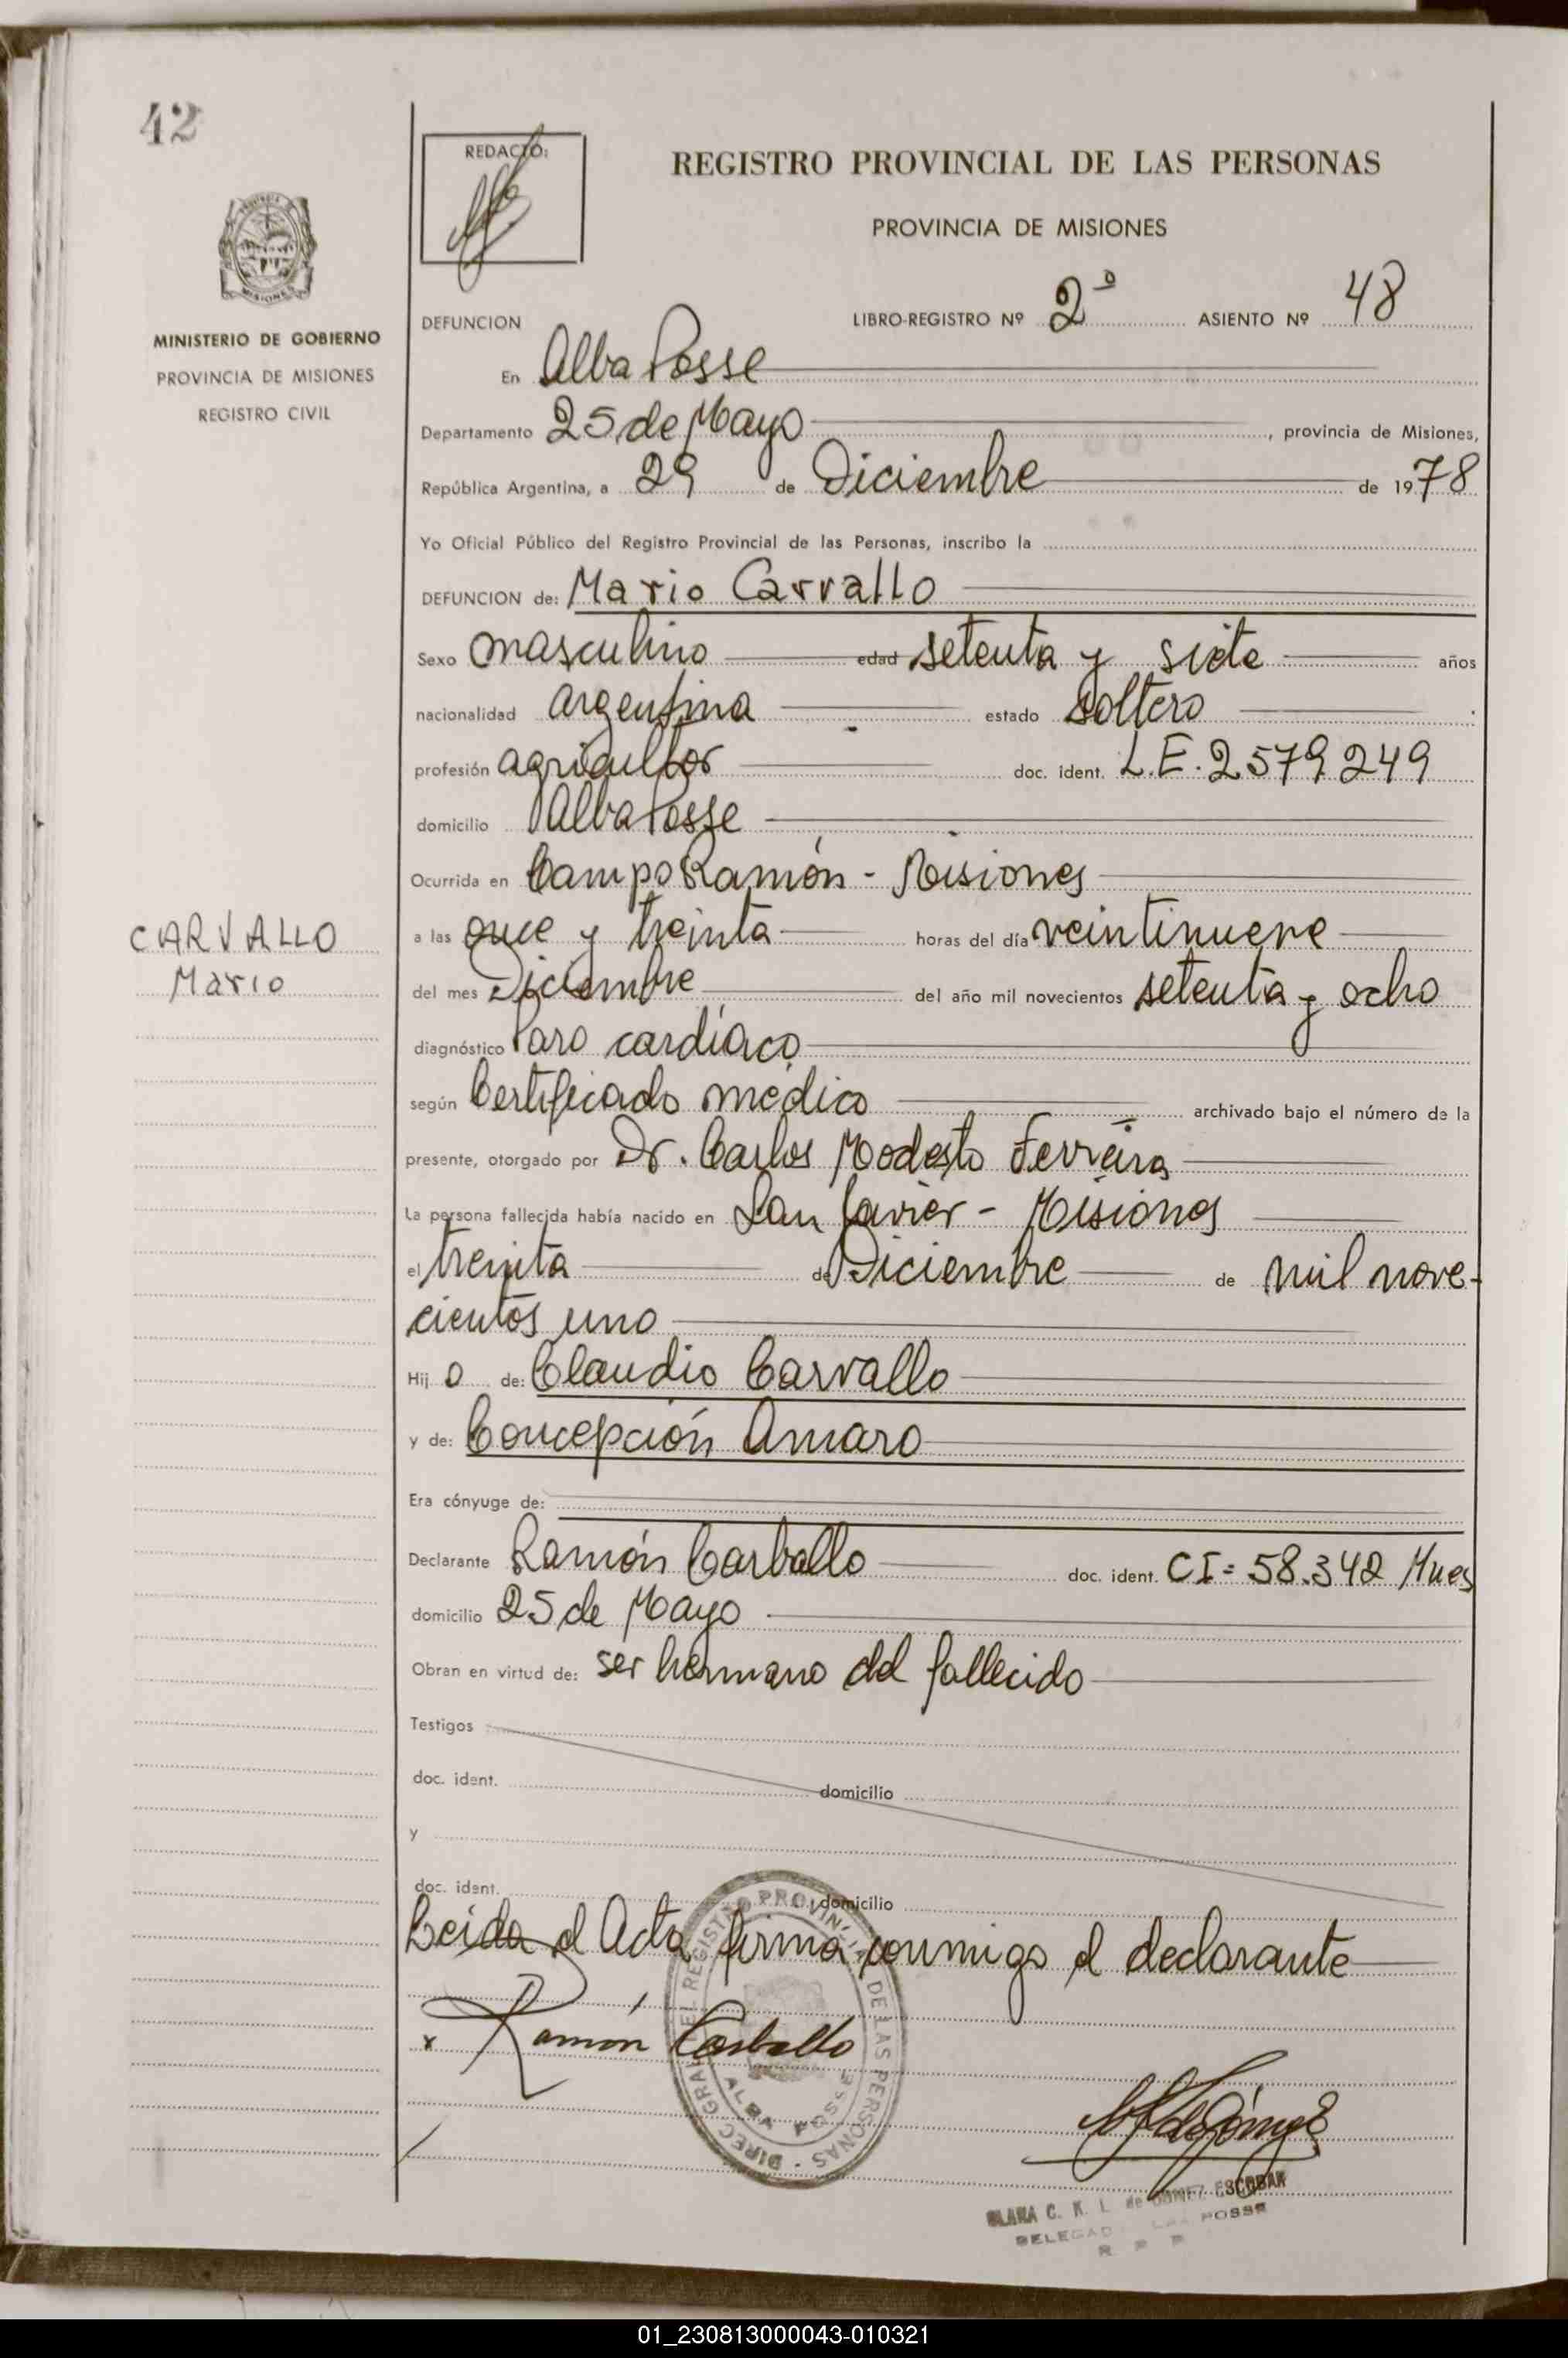 42
REDACTO:
REGISTRO PROVINCIAL DE LAS PERSONAS
PROVINCIA DE MISIONES
MISIONES
MINISTERIO DE GOBIERNO
PROVINCIA DE MISIONES
REGISTRO CIVIL
DEFUNCION LIBRO-REGISTRO Nº 2º ASIENTO Nº 48
En Alba Posse
Departamento 25 de Mayo, provincia de Misiones,
República Argentina, a 29 de Diciembre de 1978
Yo Oficial Público del Registro Provincial de las Personas, inscribo la
DEFUNCION de: Mario Carvallo
Sexo masculino edad setenta y siete años
nacionalidad argentina estado soltero
profesión agricultor doc. ident. L.E. 2579249
domicilio Alba Posse
Ocurrida en Campo Ramón - Misiones
CARVALLO
Mario
a las once y treinta horas del día veintinueve
del mes Diciembre del año mil novecientos setenta y ocho
diagnóstico Paro cardíaco
según Certificado médico archivado bajo el número de la
presente, otorgado por Dr. Carlos Modesto Ferreira
La persona fallecida había nacido en San Javier - Misiones
el treinta de Diciembre de mil nove-
cientos uno
Hij o de: Claudio Carvallo
y de: Concepción Amaro
Era cónyuge de:
Declarante Ramón Carballo doc. ident. CI= 58.342 Mnes
domicilio 25 de Mayo
Obran en virtud de: ser hermano del fallecido
Testigos
doc. ident. domicilio
y
doc. ident. domicilio
Leida el Acta firma conmigo el declarante
x Ramón Carballo
DIREC GRAL DEL REGISTRO PROVINCIAL DE LAS PERSONAS
ALBA POSSE
CLARA C. K. L. de GOMEZ ESCOBAR
DELEGADA ALBA POSSE
R P P
01_230813000043-010321